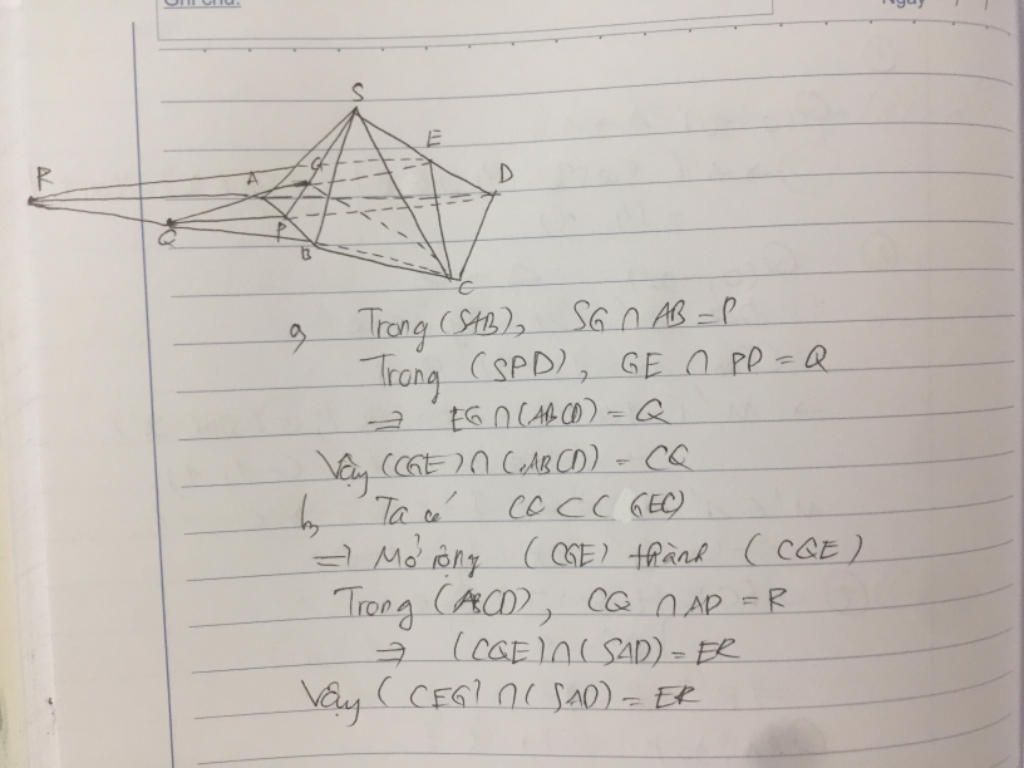 Ghi chú:
Ngày / /
S
E
R
G
A
D
Q
P
B
C
a, Trong (SAB), SG ∩ AB = P
Trong (SPD), GE ∩ PD = Q
⇒ EG ∩ (ABCD) = Q
Vậy (CGE) ∩ (ABCD) = CQ
b, Ta có CQ ⊂ (GEC)
⇒ Mở rộng (CGE) thành (CQE)
Trong (ABCD), CQ ∩ AD = R
⇒ (CQE) ∩ (SAD) = ER
Vậy (CEG) ∩ (SAD) = ER